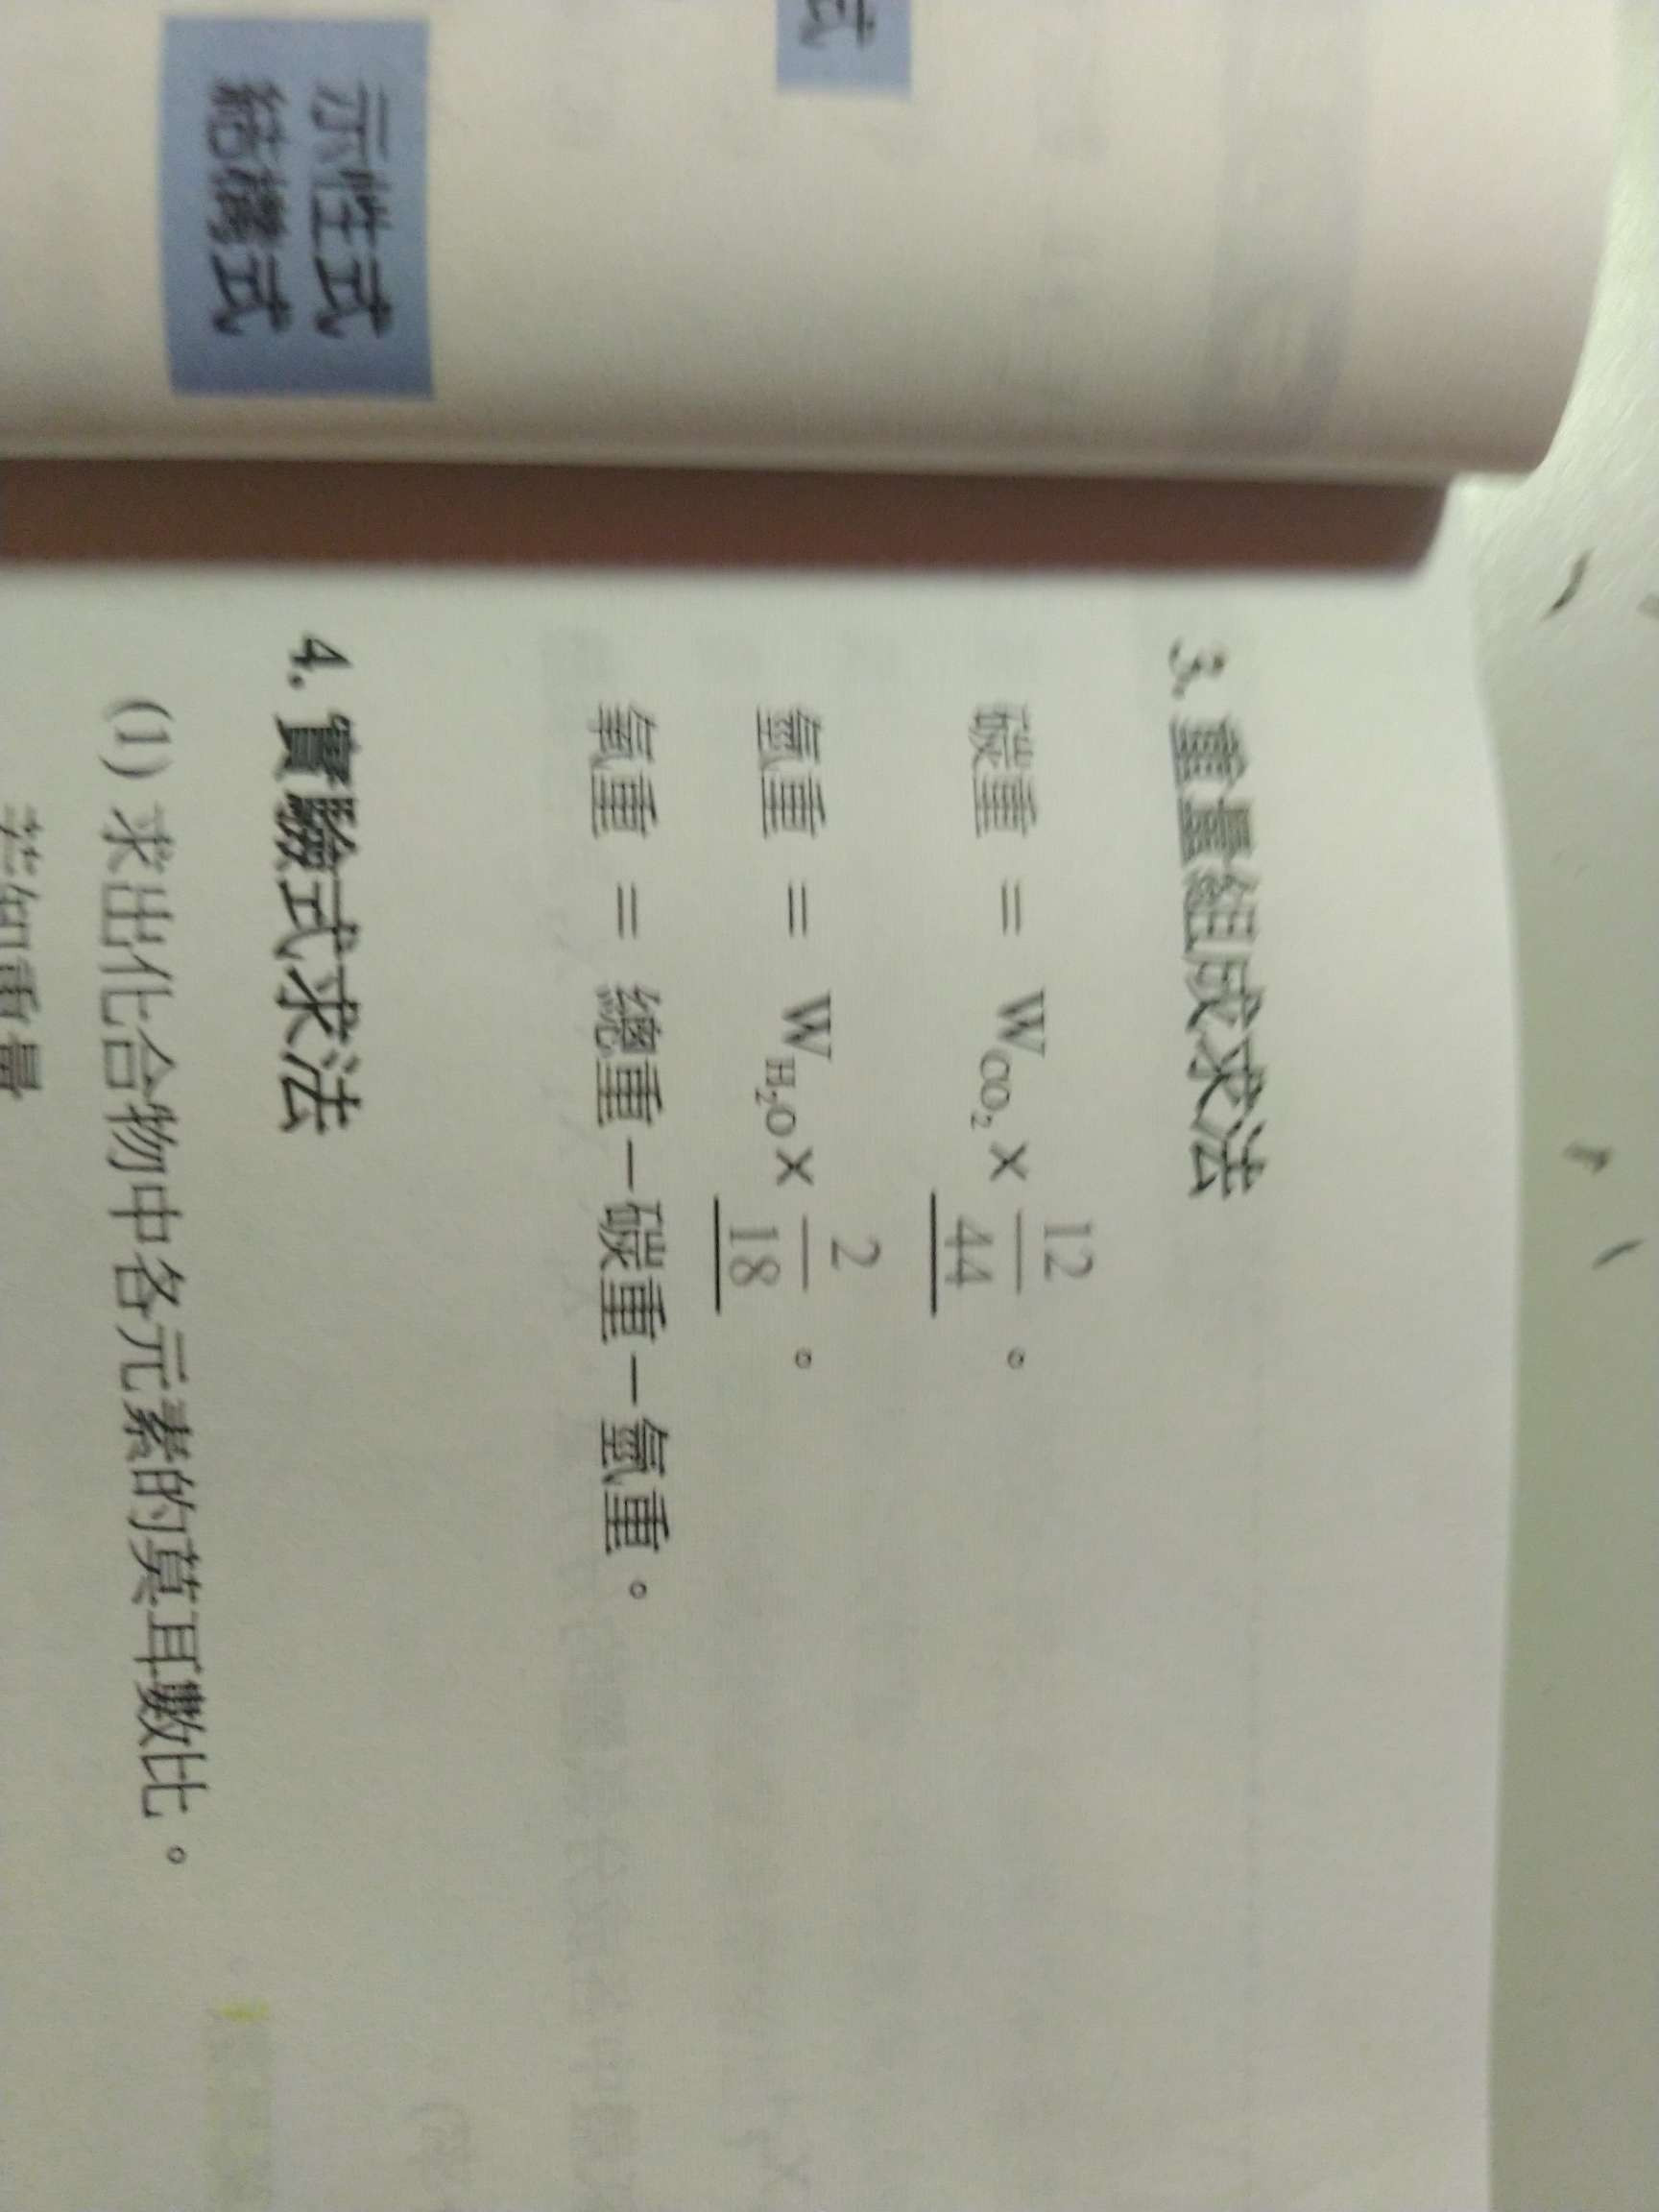 式
示性式
結構式
3. 重量組成求法
碳重 = W_CO₂ × 12/44 。
氫重 = W_H₂O × 2/18 。
氧重 = 總重－碳重－氫重。
4. 實驗式求法
(1) 求出化合物中各元素的莫耳數比。